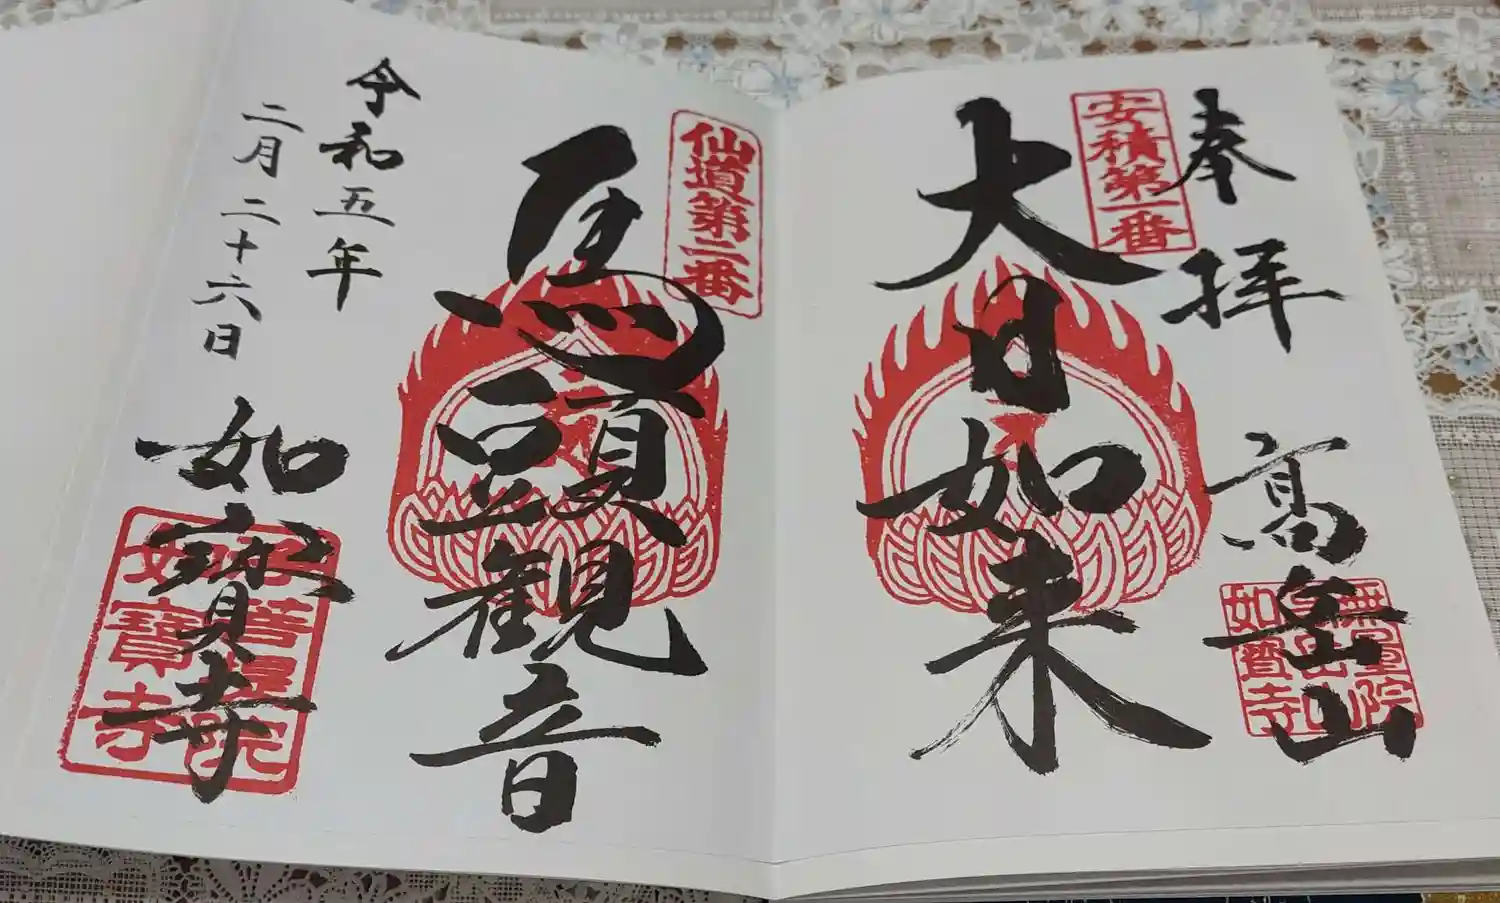 奉拝
高岳山
安積第一番
大日如来
無量
院
如寶寺
仙道第二番
馬頭観音
令和五年
二月二十六日
如寳寺
如寶寺